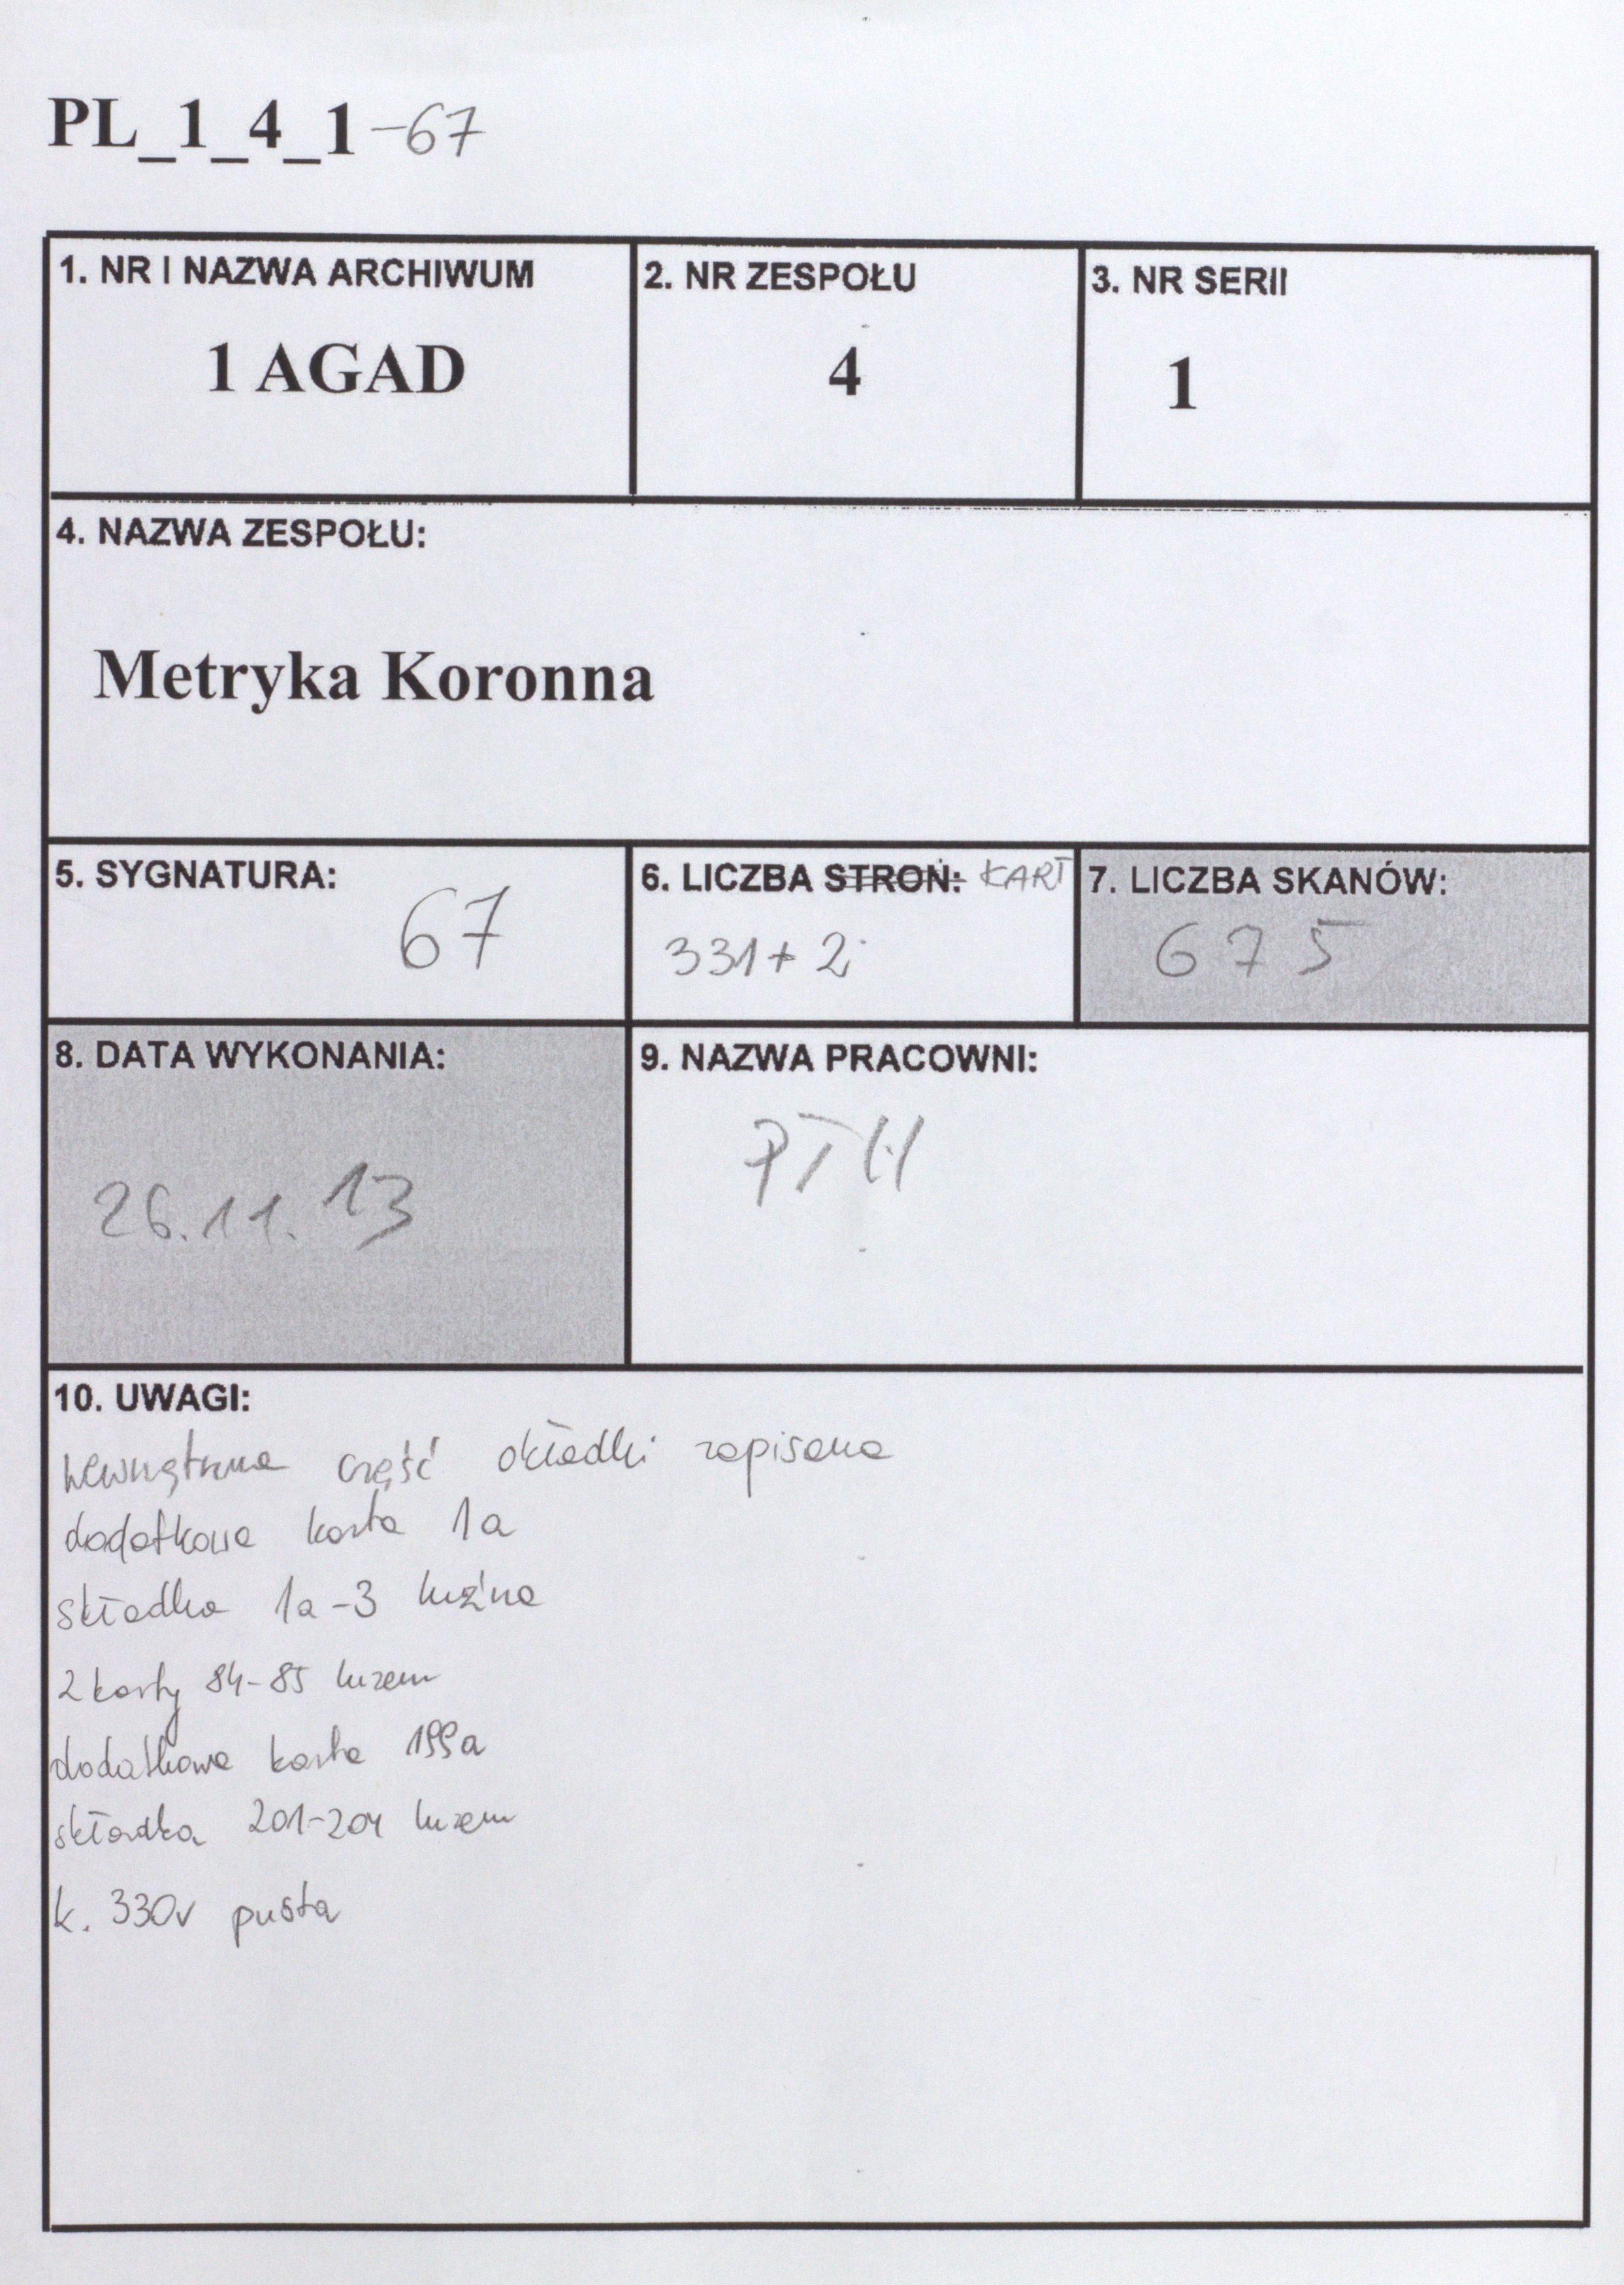 PL_1_4_1-67
1. NR I NAZWA ARCHIWUM
1 AGAD
2. NR ZESPOŁU
4
3. NR SERII
1
4. NAZWA ZESPOŁU:
Metryka Koronna
5. SYGNATURA:
67
6. LICZBA STRON: KART
331+2
7. LICZBA SKANÓW:
675
8. DATA WYKONANIA:
26.11.13
9. NAZWA PRACOWNI:
PTH
10. UWAGI:
wewnętrzna część okładki zapisana
dodatkowa karta 1a
składka 1a-3 luźna
2 karty 84-85 luzem
dodatkowa karta 199a
składka 201-204 luzem
k. 330v pusta